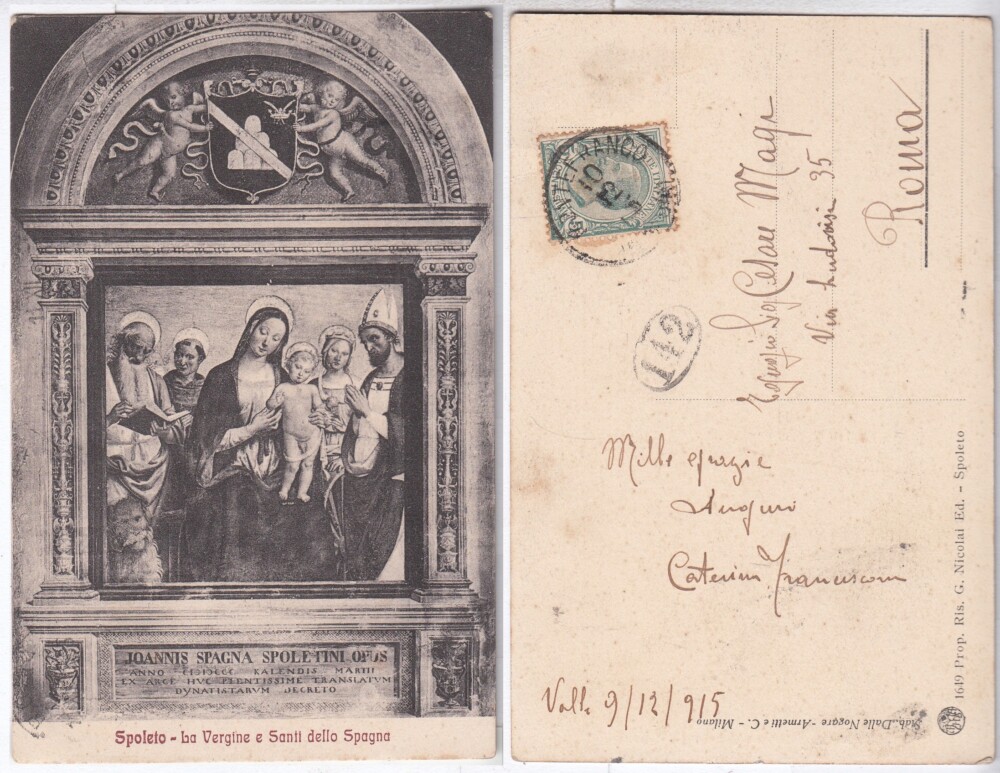 JOANNIS SPAGNA SPOLETINI OPUS
ANNO KALENDIS MARTII
EX ARCE HVC PLENTISSIME TRANSLATVM
DYNATISTARVM DECRETO
Spoleto - La Vergine e Santi dello Spagna
MONTEFRANCO
142
Sig Cesare Magi
Via Ludovisi 35
Roma
Mille grazie
Auguri
Caterina Francesconi
Valle 9/12/915
1649 Prop. Ris. G. Nicolai Ed. - Spoleto
Stab. Dalle Nogare - Armetti e C. - Milano